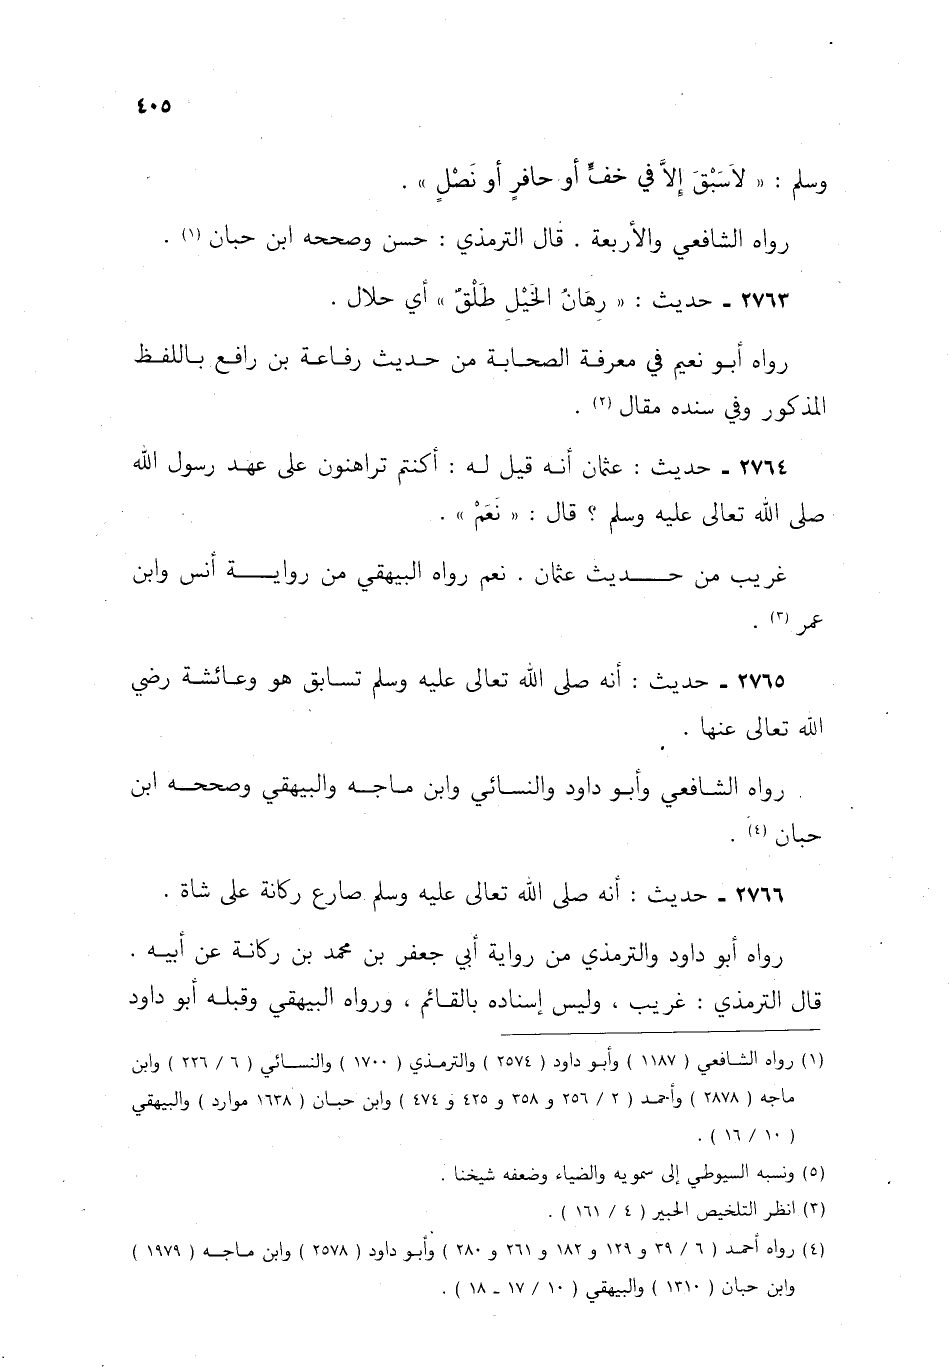 ٤٠٥
وسلم : « لاَسَبْقَ إِلاَّ في خفٍّ أو حافرٍ أو نَصْلٍ » .
رواه الشافعي والأربعة . قال الترمذي : حسن وصححه ابن حبان (١) .
٢٧٦٣ ـ حديث : « رِهَانُ الخَيْلِ طَلْقٌ » أي حلال .
رواه أبو نعيم في معرفة الصحابة من حديث رفاعة بن رافع باللفظ
المذكور وفي سنده مقال (٢) .
٢٧٦٤ ـ حديث : عثمان أنه قيل له : أكنتم تراهنون على عهد رسول الله
صلى الله تعالى عليه وسلم ؟ قال : « نَعَمْ » .
غريب من حديث عثمان . نعم رواه البيهقي من رواية أنس وابن
عمر (٣) .
٢٧٦٥ ـ حديث : أنه صلى الله تعالى عليه وسلم تسابق هو وعائشة رضي
الله تعالى عنها .
رواه الشافعي وأبو داود والنسائي وابن ماجه والبيهقي وصححه ابن
حبان (٤) .
٢٧٦٦ ـ حديث : أنه صلى الله تعالى عليه وسلم صارع ركانة على شاة .
رواه أبو داود والترمذي من رواية أبي جعفر بن محمد بن ركانة عن أبيه .
قال الترمذي : غريب ، وليس إسناده بالقائم ، ورواه البيهقي وقبله أبو داود
(١) رواه الشافعي ( ١١٨٧ ) وأبو داود ( ٢٥٧٤ ) والترمذي ( ١٧٠٠ ) والنسائي ( ٦ / ٢٢٦ ) وابن
ماجه ( ٢٨٧٨ ) وأحمد ( ٢ / ٢٥٦ و ٣٥٨ و ٤٢٥ و ٤٧٤ ) وابن حبان ( ١٦٣٨ موارد ) والبيهقي
( ١٠ / ١٦ ) .
(٥) ونسبه السيوطي إلى سمويه والضياء وضعفه شيخنا .
(٣) انظر التلخيص الحبير ( ٤ / ١٦١ ) .
(٤) رواه أحمد ( ٦ / ٣٩ و ١٢٩ و ١٨٢ و ٢٦١ و ٢٨٠ ) وأبو داود ( ٢٥٧٨ ) وابن ماجه ( ١٩٧٩ )
وابن حبان ( ١٣١٠ ) والبيهقي ( ١٠ / ١٧ ـ ١٨ ) .